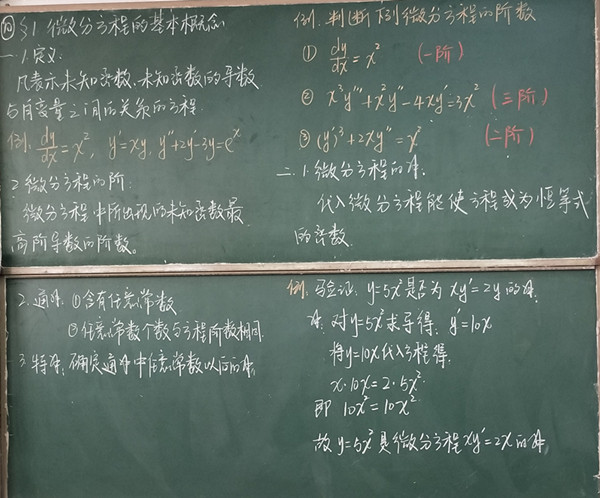 §1 微分方程的基本概念
一.1.定义.
凡表示未知函数、未知函数的导数
与自变量之间的关系的方程.
例. dy/dx=x², y'=xy, y''+2y'-3y=eˣ
2.微分方程的阶:
微分方程中所出现的未知函数最
高阶导数的阶数。
例.判断下列微分方程的阶数
① dy/dx=x² (一阶)
② x³y'''+x²y''-4xy'=3x² (三阶)
③ (y')³+2xy''=x² (二阶)
二.1.微分方程的解.
代入微分方程能使方程成为恒等式
的函数.
2.通解.①含有任意常数
②任意常数个数与方程阶数相同.
3.特解.确定通解中任意常数以后的解.
例.验证:y=5x²是否为xy'=2y的解.
解.对y=5x²求导得.y'=10x
将y=10x代入方程得.
x·10x=2·5x²
即 10x²=10x²
故y=5x²是微分方程xy'=2x的解